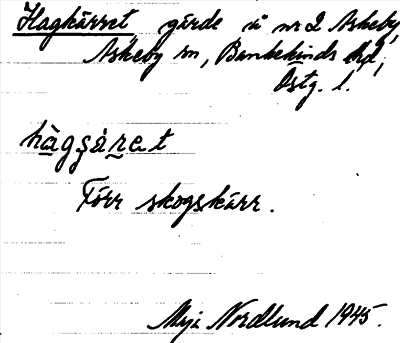 Hagkärret gärde å nr 2 Askeby,
Askeby sn, Bankekinds hd,
Östg. l.
hàgʂàret
Förr skogskärr.
Maja Nordlund 1945.